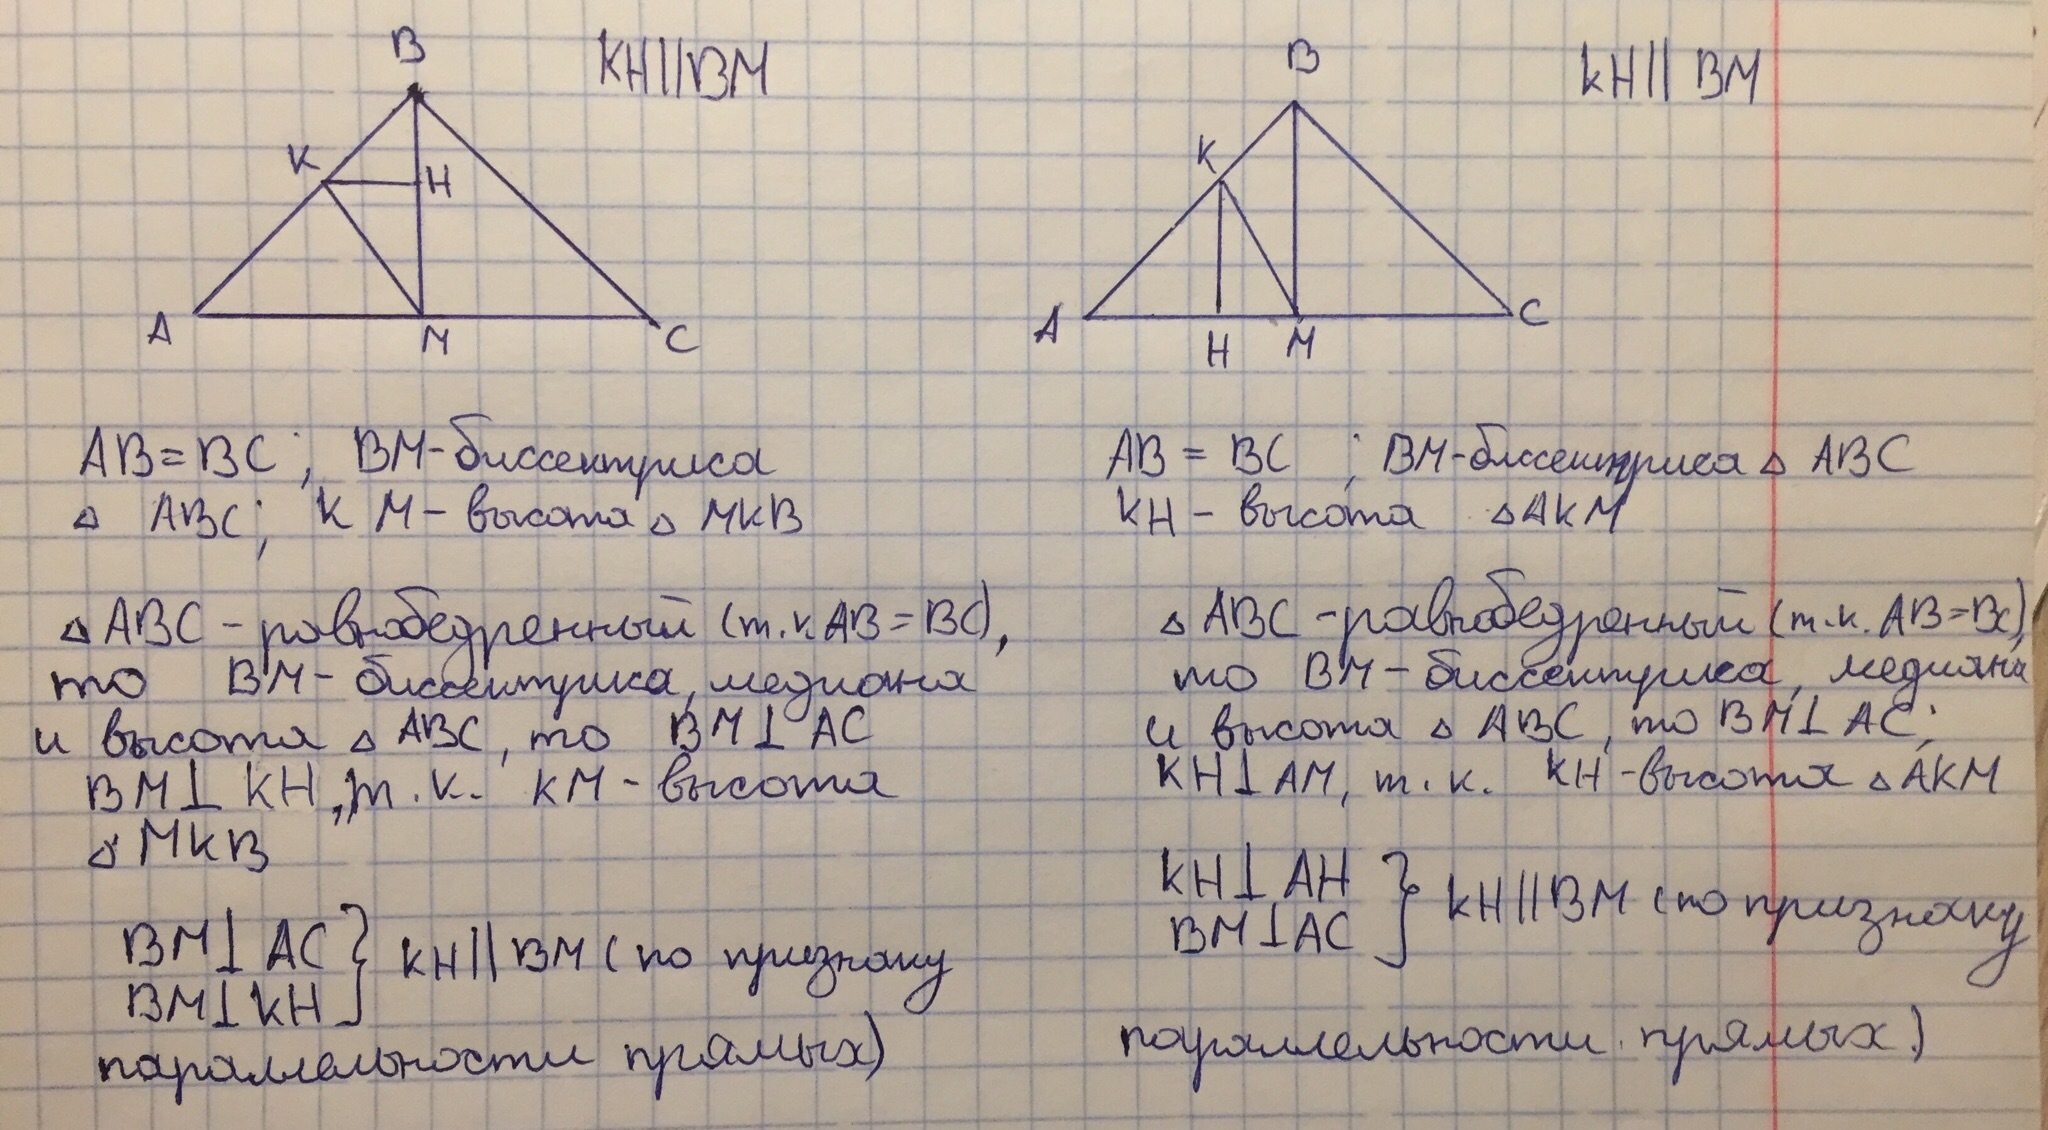 B
KH||BM
K
H
A
M
C
AB=BC; BM-биссектриса
△ ABC; KM-высота △ MKB
△ABC-равнобедренный (т.к. AB=BC),
то BM-биссектриса, медиана
и высота △ ABC, то BM⊥AC
BM⊥KH, т.к. KM-высота
△ MKB
BM⊥AC
BM⊥KH
} KH||BM (по признаку
параллельности прямых)
B
KH|| BM
K
A
H
M
C
AB = BC ; BM-биссектриса △ ABC
KH - высота △AKM
△ ABC-равнобедренный (т.к. AB=BC),
то BM-биссектриса, медиана
и высота △ ABC, то BM⊥AC;
KH⊥AM, т.к. KH-высота △AKM
KH⊥AH
BM⊥AC
} KH||BM (по признаку
параллельности прямых.)